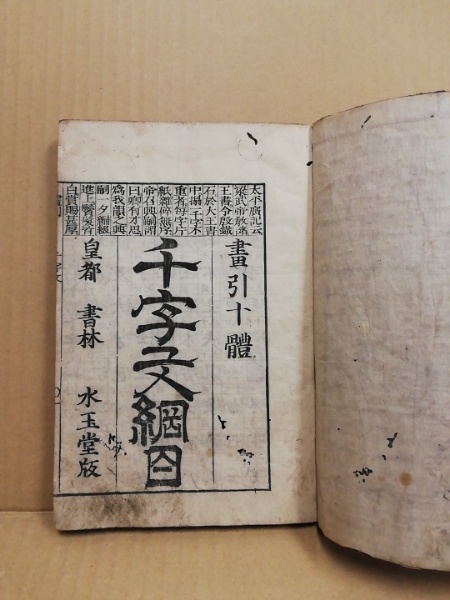 太平廣記云
梁武帝教諸
王書令殷鐵
石於大王書
中搨一千字不
重者每字片
紙雜碎無序
帝召興嗣謂
曰卿有才思
為我韻之興
嗣一夕編綴
進上鬢髮皆
白賞賜甚厚
畫引十體
千字文綱目
皇都 書林 水玉堂版